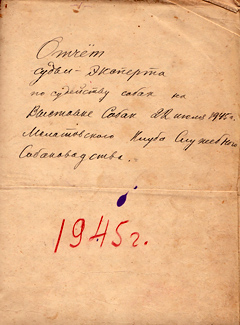 Отчёт
судьи-эксперта
по судейству собак на
Выставке Собак 22 июля 1945г.
Молотовского Клуба Служебного
Собаководства.
1945г.